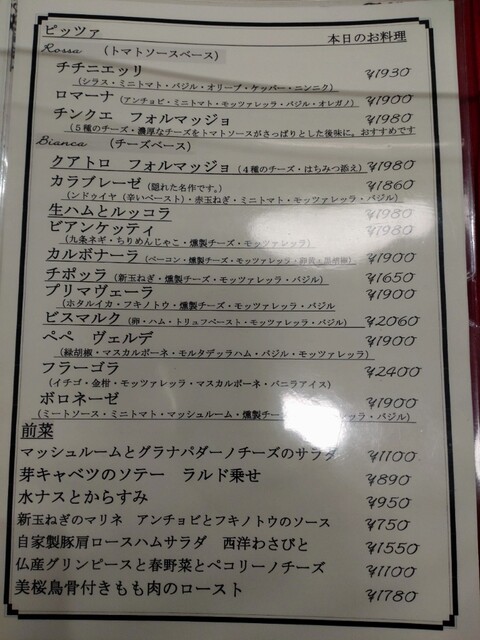 ピッツァ 本日のお料理
Rossa （トマトソースベース）
チチニエッリ ¥1930
（シラス・ミニトマト・バジル・オリーブ・ケッパー・ニンニク）
ロマーナ（アンチョビ・ミニトマト・モッツァレッラ・バジル・オレガノ） ¥1900
チンクエ フォルマッジョ ¥1980
（5種のチーズ・濃厚なチーズをトマトソースがさっぱりとした後味に。おすすめです
Bianca （チーズベース）
クアトロ フォルマッジョ（４種のチーズ・はちみつ添え） ¥1980
カラブレーゼ（隠れた名作です。） ¥1860
（ンドゥイヤ（辛いペースト）・赤玉ねぎ・ミニトマト・モッツァレッラ・バジル）
生ハムとルッコラ ¥1980
ビアンケッティ ¥1980
（九条ネギ・ちりめんじゃこ・燻製チーズ・モッツァレッラ）
カルボナーラ（ベーコン・燻製チーズ・モッツァレッラ・卵黄・黒胡椒） ¥1900
チポッラ（新玉ねぎ・燻製チーズ・モッツァレッラ・バジル） ¥1650
プリマヴェーラ ¥1900
（ホタルイカ・フキノトウ・燻製チーズ・モッツァレッラ・バジル
ビスマルク（卵・ハム・トリュフペースト・モッツァレッラ・バジル） ¥2060
ペペ ヴェルデ ¥1900
（緑胡椒・マスカルポーネ・モルタデッラハム・バジル・モッツァレッラ）
フラーゴラ ¥2400
（イチゴ・金柑・モッツァレッラ・マスカルポーネ・バニラアイス）
ボロネーゼ ¥1900
（ミートソース・ミニトマト・マッシュルーム・燻製チーズ・モッツァレッラ・バジル）
前菜
マッシュルームとグラナパダーノチーズのサラダ ¥1100
芽キャベツのソテー ラルド乗せ ¥890
水ナスとからすみ ¥950
新玉ねぎのマリネ アンチョビとフキノトウのソース ¥750
自家製豚肩ロースハムサラダ 西洋わさびと ¥1550
仏産グリンピースと春野菜とペコリーノチーズ ¥1100
美桜鳥骨付きもも肉のロースト ¥1780